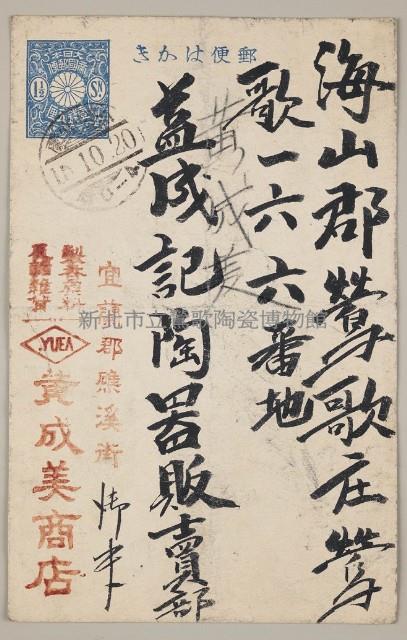 郵便はかき
大日本帝國郵便
1½ Sn
15.10.20
海山郡鶯歌庄鶯
歌一六六番地
益成記陶器販賣部
黄成美
新北市立鶯歌陶瓷博物館
宜蘭郡礁溪街
YUEA
黄成美商店